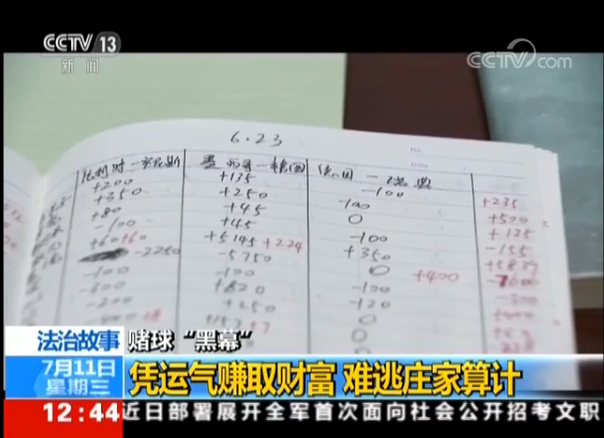 CCTV 13
新闻
CCTV.com
6.23
比利时-突尼斯 墨西哥-韩国 德国-瑞典
+200 +135 -100 +235
+350 +250 -100 +500
+80 +45 0 +125
-100 +45 -100 -155
+60 +60 +5145 +224 +350 +5839
-2250 -5750 0 +400 -7600
-100 -100 -100 -300
-300 +820 -120 +400
-200 +250 0
法治故事
赌球“黑幕”
7月11日
星期三
凭运气赚取财富 难逃庄家算计
12:44
近日部署展开全军首次面向社会公开招考文职